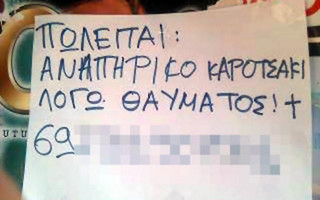 ΠΩΛΕΠΑΙ:
ΑΝΑΠΗΡΙΚΟ ΚΑΡΟΤΣΑΚΙ
ΛΟΓΩ ΘΑΥΜΑΤΟΣ! +
69
UTU